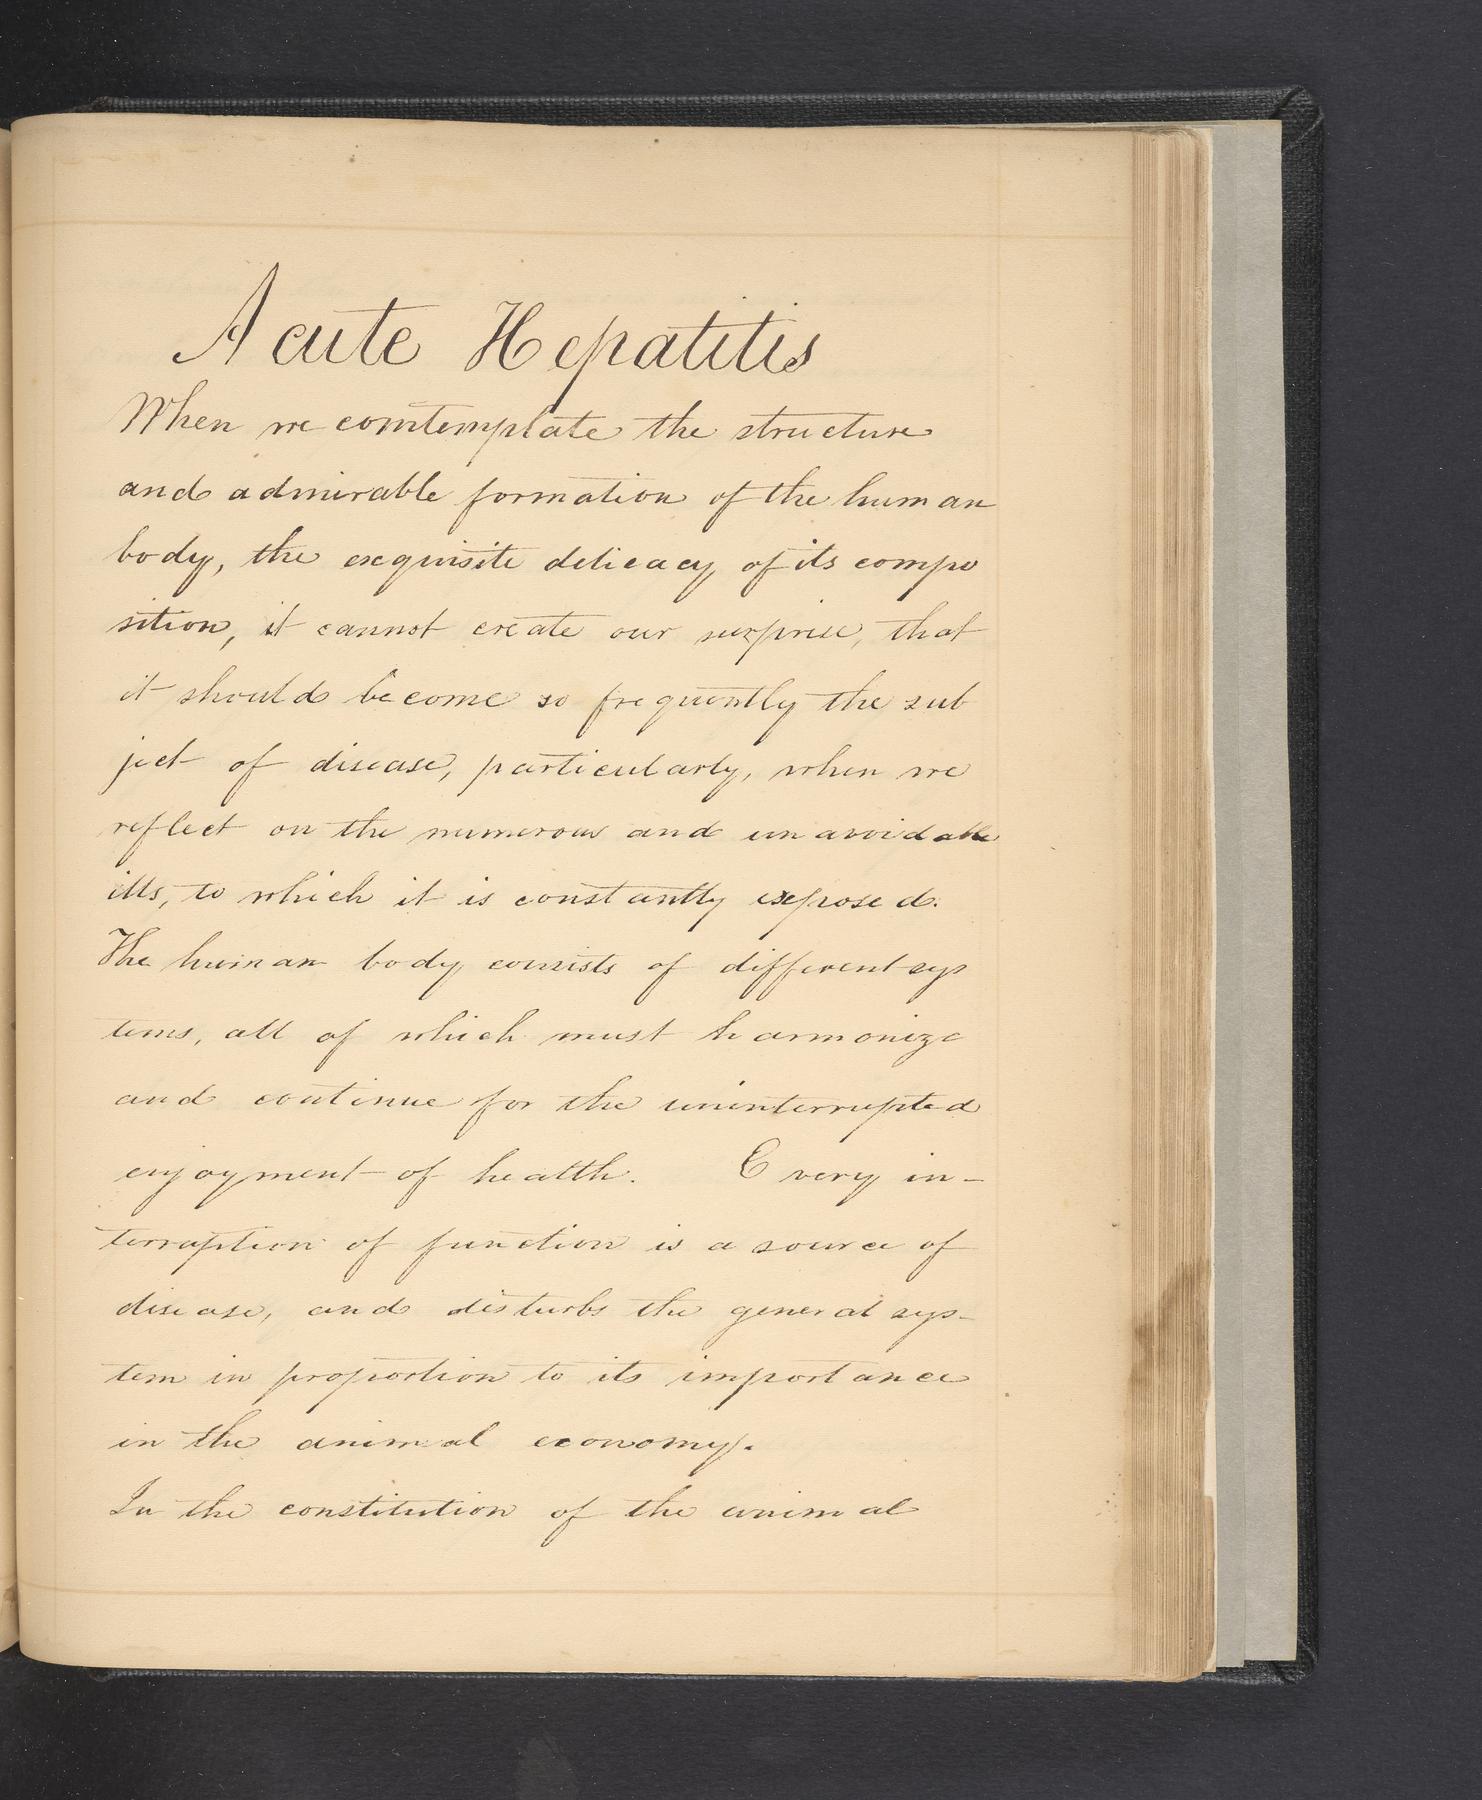 Acute Hepatitis
When we comtemplate the structure
and admirable formation of the human
body, the exquisite delicacy of its compo
sition, it cannot create our surprise, that
it should become so frequently the sub
ject of disease, particularly, when we
reflect on the numerous and unavoidable
ills, to which it is constantly exposed.
The human body consists of different sys
tems, all of which must harmonize
and continue for the uninterrupted
enjoyment of health. Every in-
terruption of function is a source of
disease, and disturbs the general sys-
tem in proportion to its importance
in the animal economy.
In the constitution of the animal